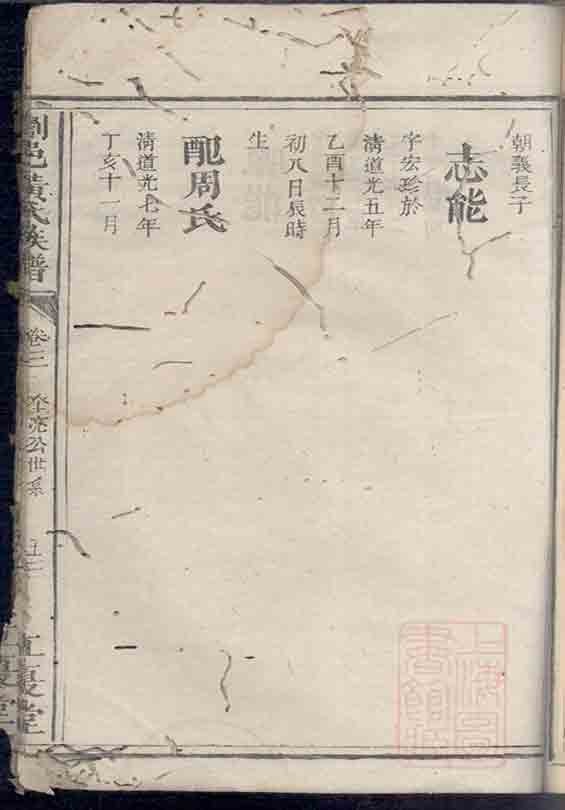 朝義長子
志能
字宏珍於
清道光五年
乙酉十二月
初八日辰時
生
配周氏
清道光七年
丁亥十一月
瀏邑黃氏族譜
卷三
公世系
直夏堂
上海圖書館藏